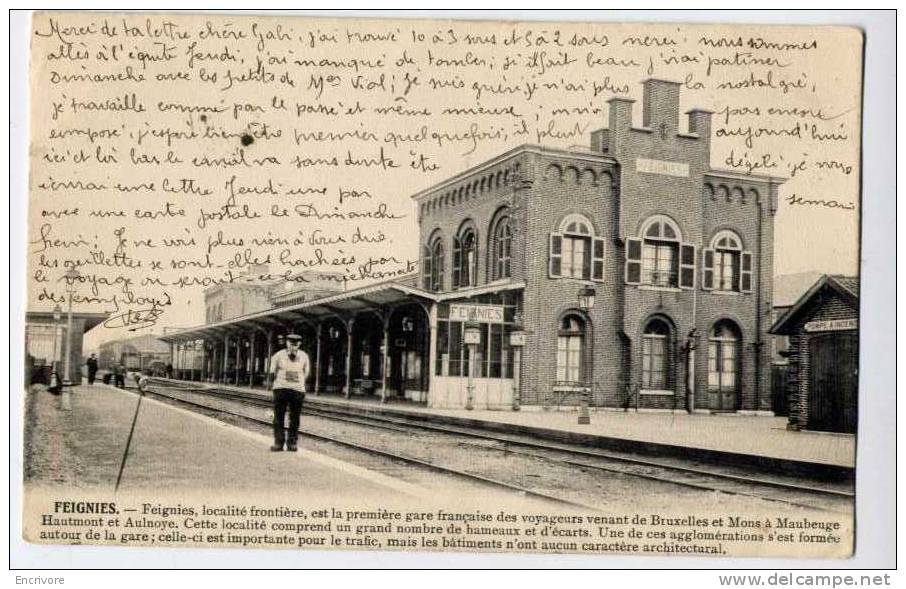 Merci de ta lettre chère Gabi, j'ai trouvé 10 à 3 sous et 5 à 2 sous merci nous sommes
allés à l' Jeudi, j'ai manqué de tomber; s'il fait beau j'irai patiner
Dimanche avec les petits de Viol; Je suis guéri je n'ai plus la nostalgie,
je travaille comme par le passé et même mieux; pas encore
composé, j'espère bien être premier quelquefois, il pleut aujourd'hui
ici et là bas le canal va sans doute être dégelé je vous
une lettre Jeudi une par semaine
avec une carte postale le Dimanche
Je ne vois plus rien à vous dire
les se sont-elles par
le voyage ou serait-ce la
des employés
FEIGNIES
FEIGNIES
POMPE A INCENDIE
FEIGNIES. — Feignies, localité frontière, est la première gare française des voyageurs venant de Bruxelles et Mons à Maubeuge
Hautmont et Aulnoye. Cette localité comprend un grand nombre de hameaux et d'écarts. Une de ces agglomérations s'est formée
autour de la gare; celle-ci est importante pour le trafic, mais les bâtiments n'ont aucun caractère architectural.
Encrivore
http://www.delcampe.net